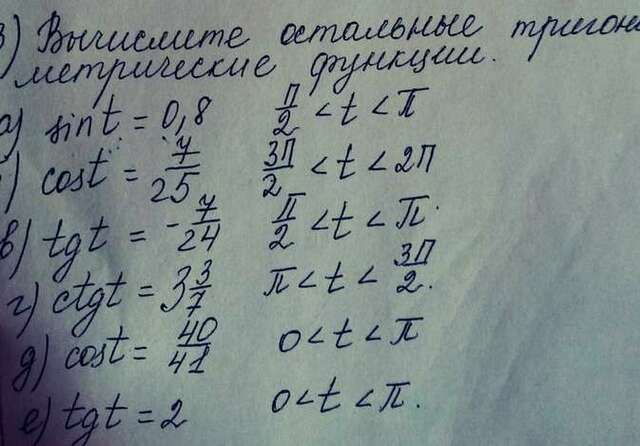 3) Вычислите остальные тригоно
метрические функции.
а) sint = 0,8 π/2 < t < π
) cost = 7/25 3π/2 < t < 2π
в) tgt = -7/24 π/2 < t < π.
г) ctgt = 3 3/7 π < t < 3π/2.
д) cost = 40/41 0 < t < π
е) tgt = 2 0 < t < π.